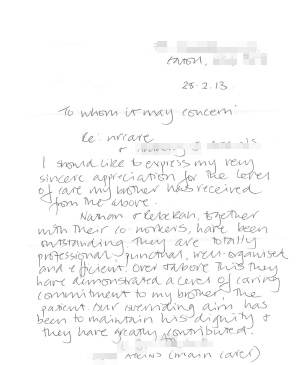 Eaton,
28.2.13.
To whom it may concern:
Re: nrcare
+
I should like to express my very
sincere appreciation for the level
of care my brother has received
from the above.
Nathan & Rebekah, together
with their co-workers, have been
outstanding. They are totally
professional, punctual, well-organised
and efficient. Over & above this they
have demonstrated a level of caring
commitment to my brother, the
patient. Our overriding aim has
been to maintain his dignity &
they have greatly contributed.
ATKINS (main carer)